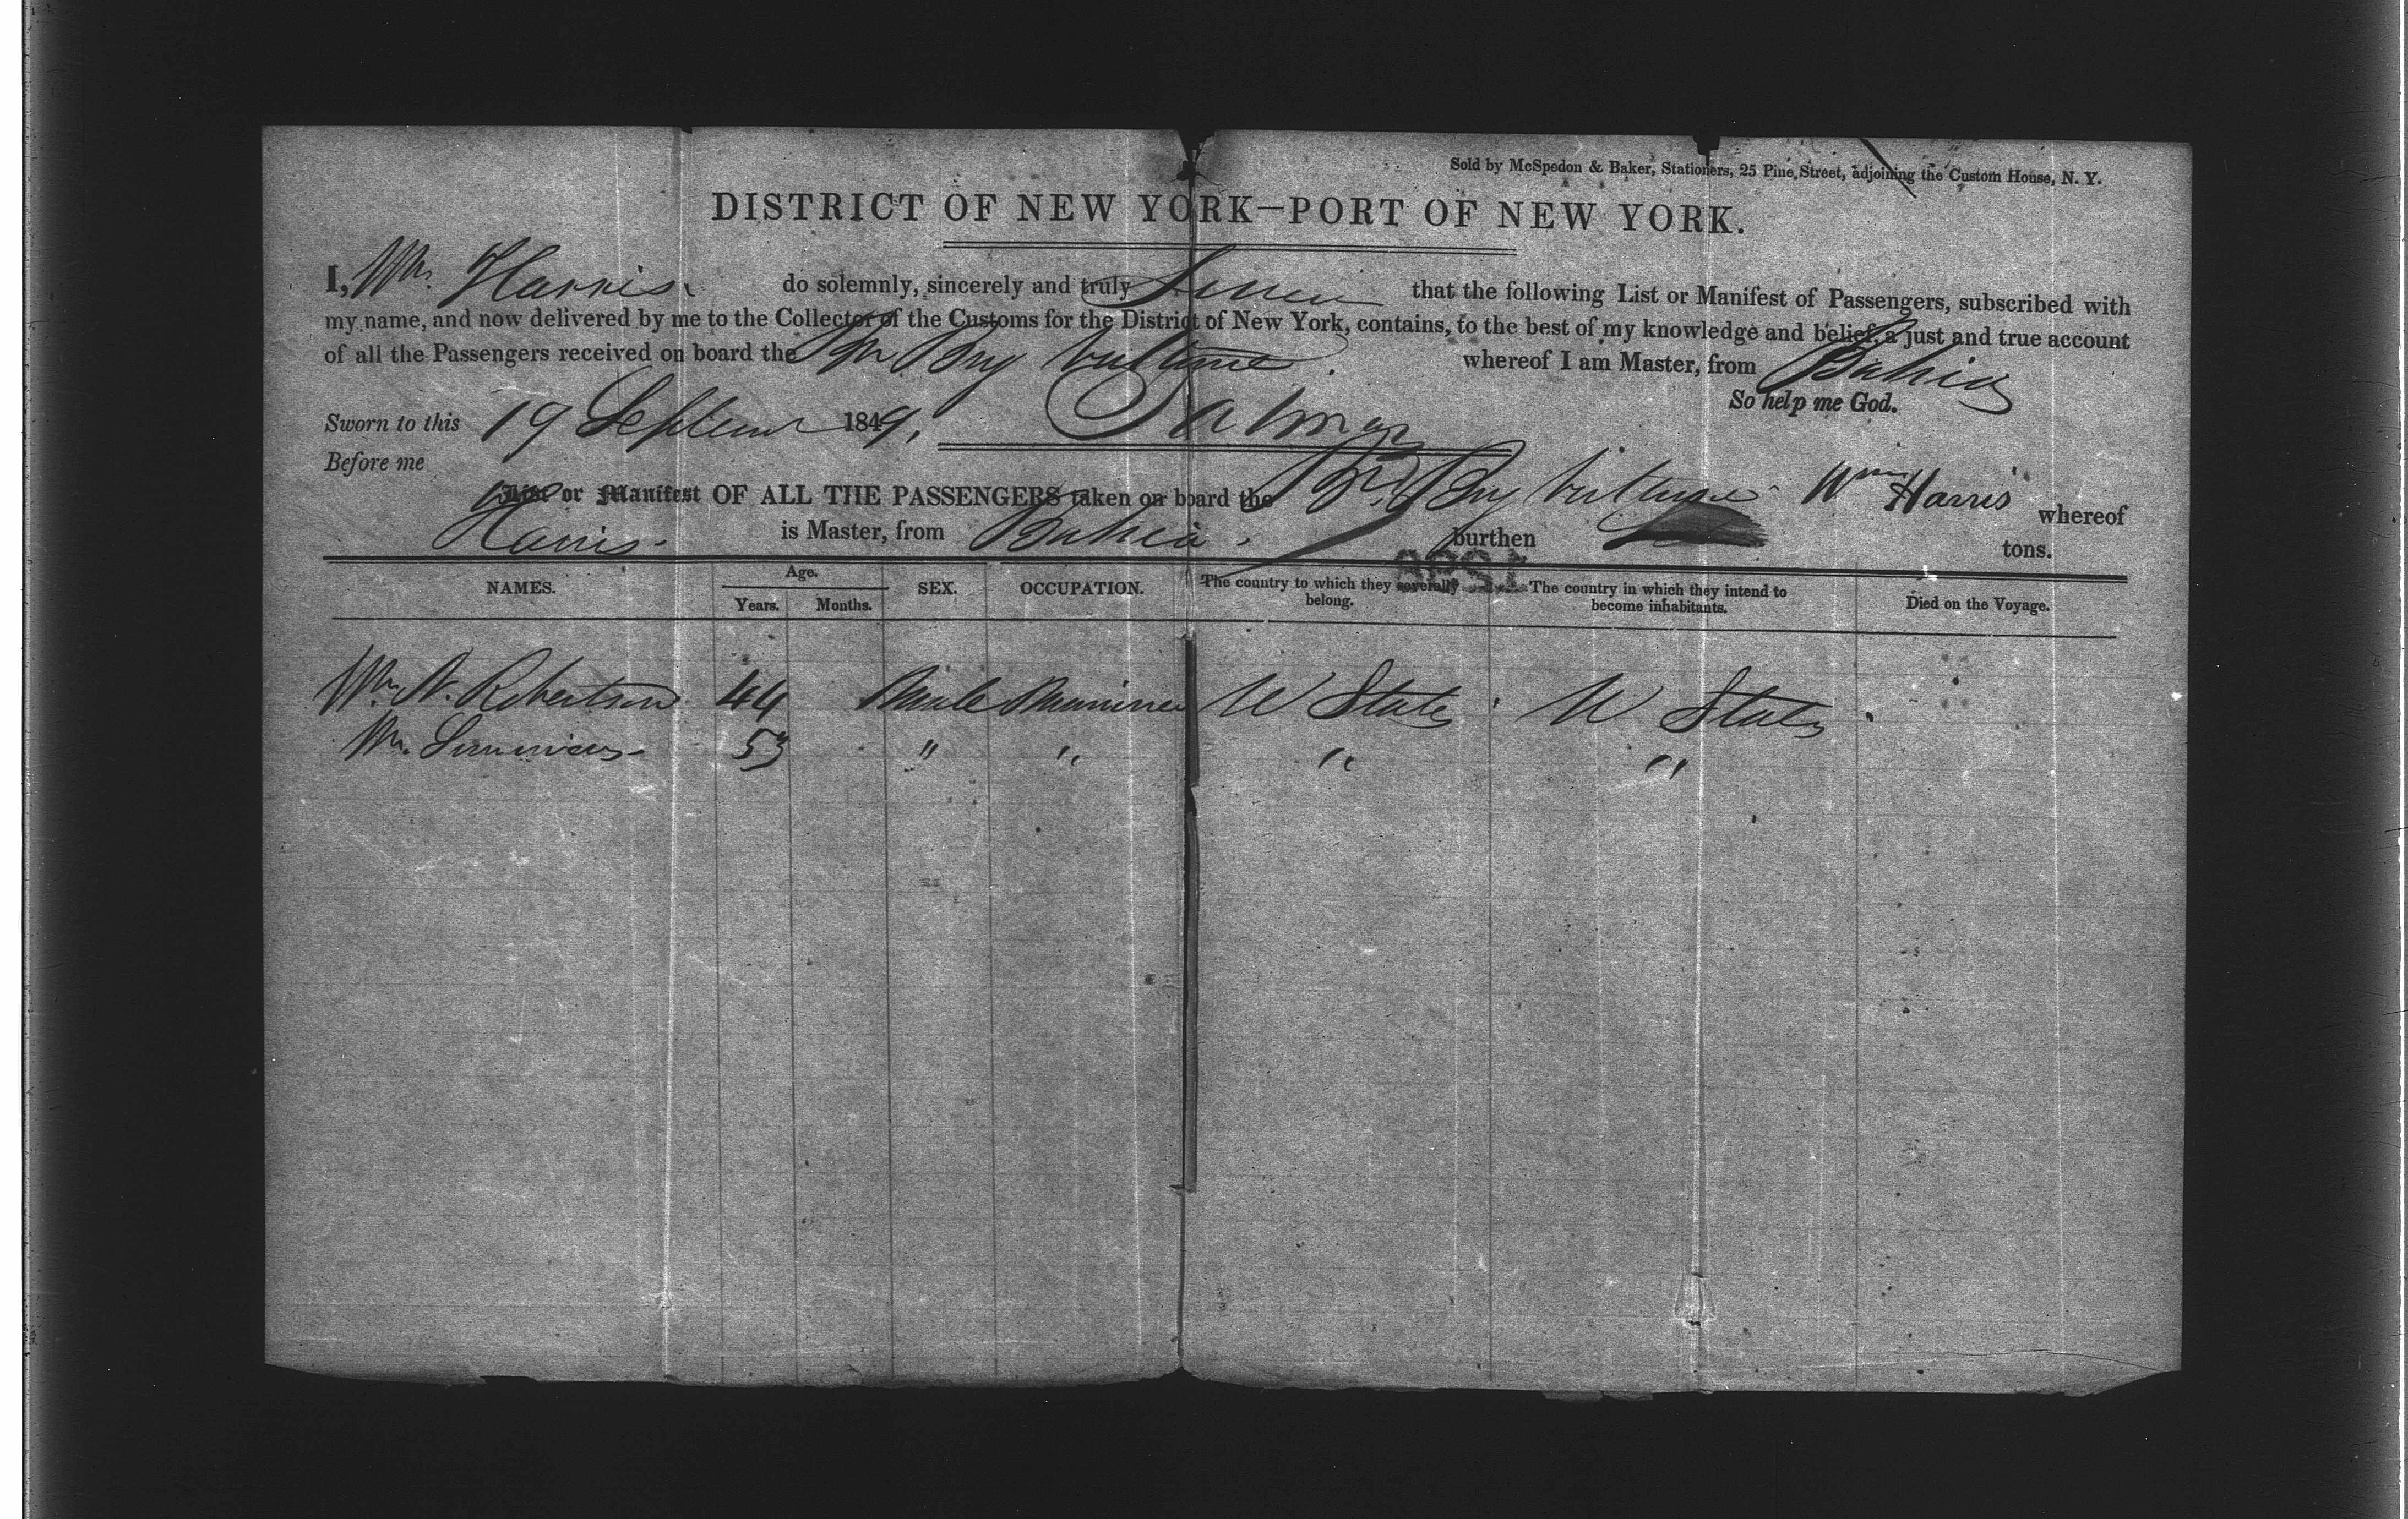 Sold by McSpedon & Baker, Stationers, 25 Pine Street, adjoining the Custom House, N. Y.
DISTRICT OF NEW YORK—PORT OF NEW YORK.
I, Wm. Harris. do solemnly, sincerely and truly Swear that the following List or Manifest of Passengers, subscribed with
my name, and now delivered by me to the Collector of the Customs for the District of New York, contains, to the best of my knowledge and belief, a just and true account
of all the Passengers received on board the Br Brig Vulture. whereof I am Master, from Bahia
So help me God.
Sworn to this 19 September 1849,
Before me
List or Manifest OF ALL THE PASSENGERS taken on board the Br. Brig Vulture Wm Harris whereof
Harris. is Master, from Bahia. burthen tons.
NAMES. Age. Years. Months. SEX. OCCUPATION. The country to which they severally belong. The country in which they intend to become inhabitants. Died on the Voyage.
Wm N. Robertson 44 Male Mariner U States U States
Wm. 53 " " " "